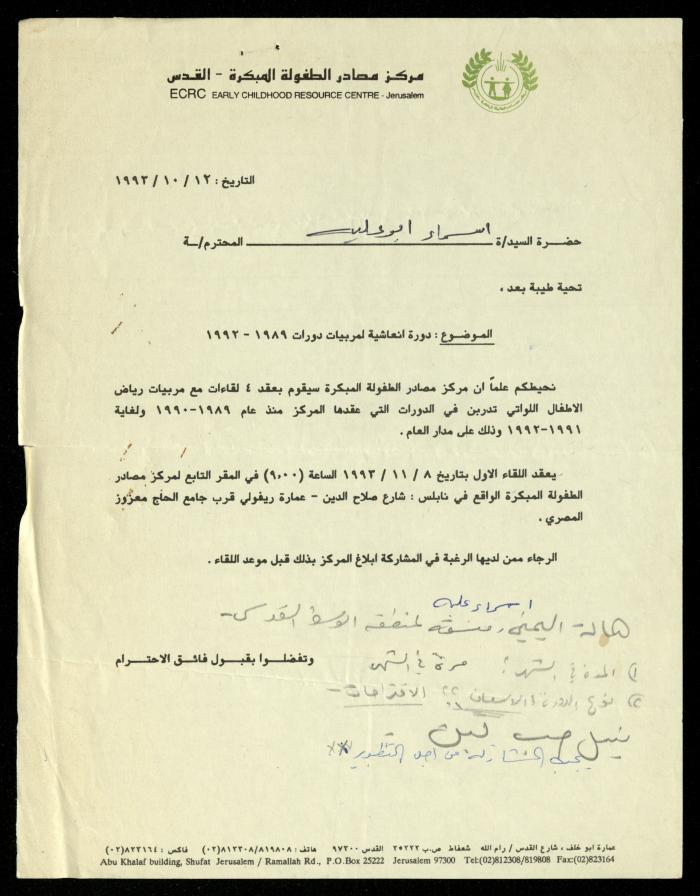 مركز مصادر الطفولة المبكرة - القدس
ECRC EARLY CHILDHOOD RESOURCE CENTRE - Jerusalem
التاريخ : ١٢ / ١٠ / ١٩٩٣
حضرة السيد/ة اسراء ابو عليه المحترم/ـة
تحية طيبة بعد ،
الموضوع : دورة انعاشية لمربيات دورات ١٩٨٩ - ١٩٩٢
نحيطكم علماً ان مركز مصادر الطفولة المبكرة سيقوم بعقد ٤ لقاءات مع مربيات رياض
الاطفال اللواتي تدربن في الدورات التي عقدها المركز منذ عام ١٩٨٩-١٩٩٠ ولغاية
١٩٩١-١٩٩٢ وذلك على مدار العام .
يعقد اللقاء الاول بتاريخ ٨ / ١١ / ١٩٩٣ الساعة (٩,٠٠) في المقر التابع لمركز مصادر
الطفولة المبكرة الواقع في نابلس : شارع صلاح الدين - عمارة ريفولي قرب جامع الحاج معزوز
المصري .
الرجاء ممن لديها الرغبة في المشاركة ابلاغ المركز بذلك قبل موعد اللقاء .
اسراء عليه
هالة اليمني ، منسقة لمنطقة الوسط القدس -
وتفضلوا بقبول فائق الاحترام
١) المدة في الشهر ؟ مرة في الشهر
٢) نوع الدورة الاقتراحات -
من اجل التطوير
عمارة ابو خلف ، شارع القدس / رام الله شعفاط ص.ب ٢٥٢٢٢ القدس ٩٧٣٠٠ هاتف : ٨١٢٣٠٨/٨١٩٨٠٨(٠٢) فاكس : ٨٢٣١٦٤(٠٢)
Abu Khalaf building, Shufat Jerusalem / Ramallah Rd., P.O.Box 25222 Jerusalem 97300 Tel:(02)812308/819808 Fax:(02)823164